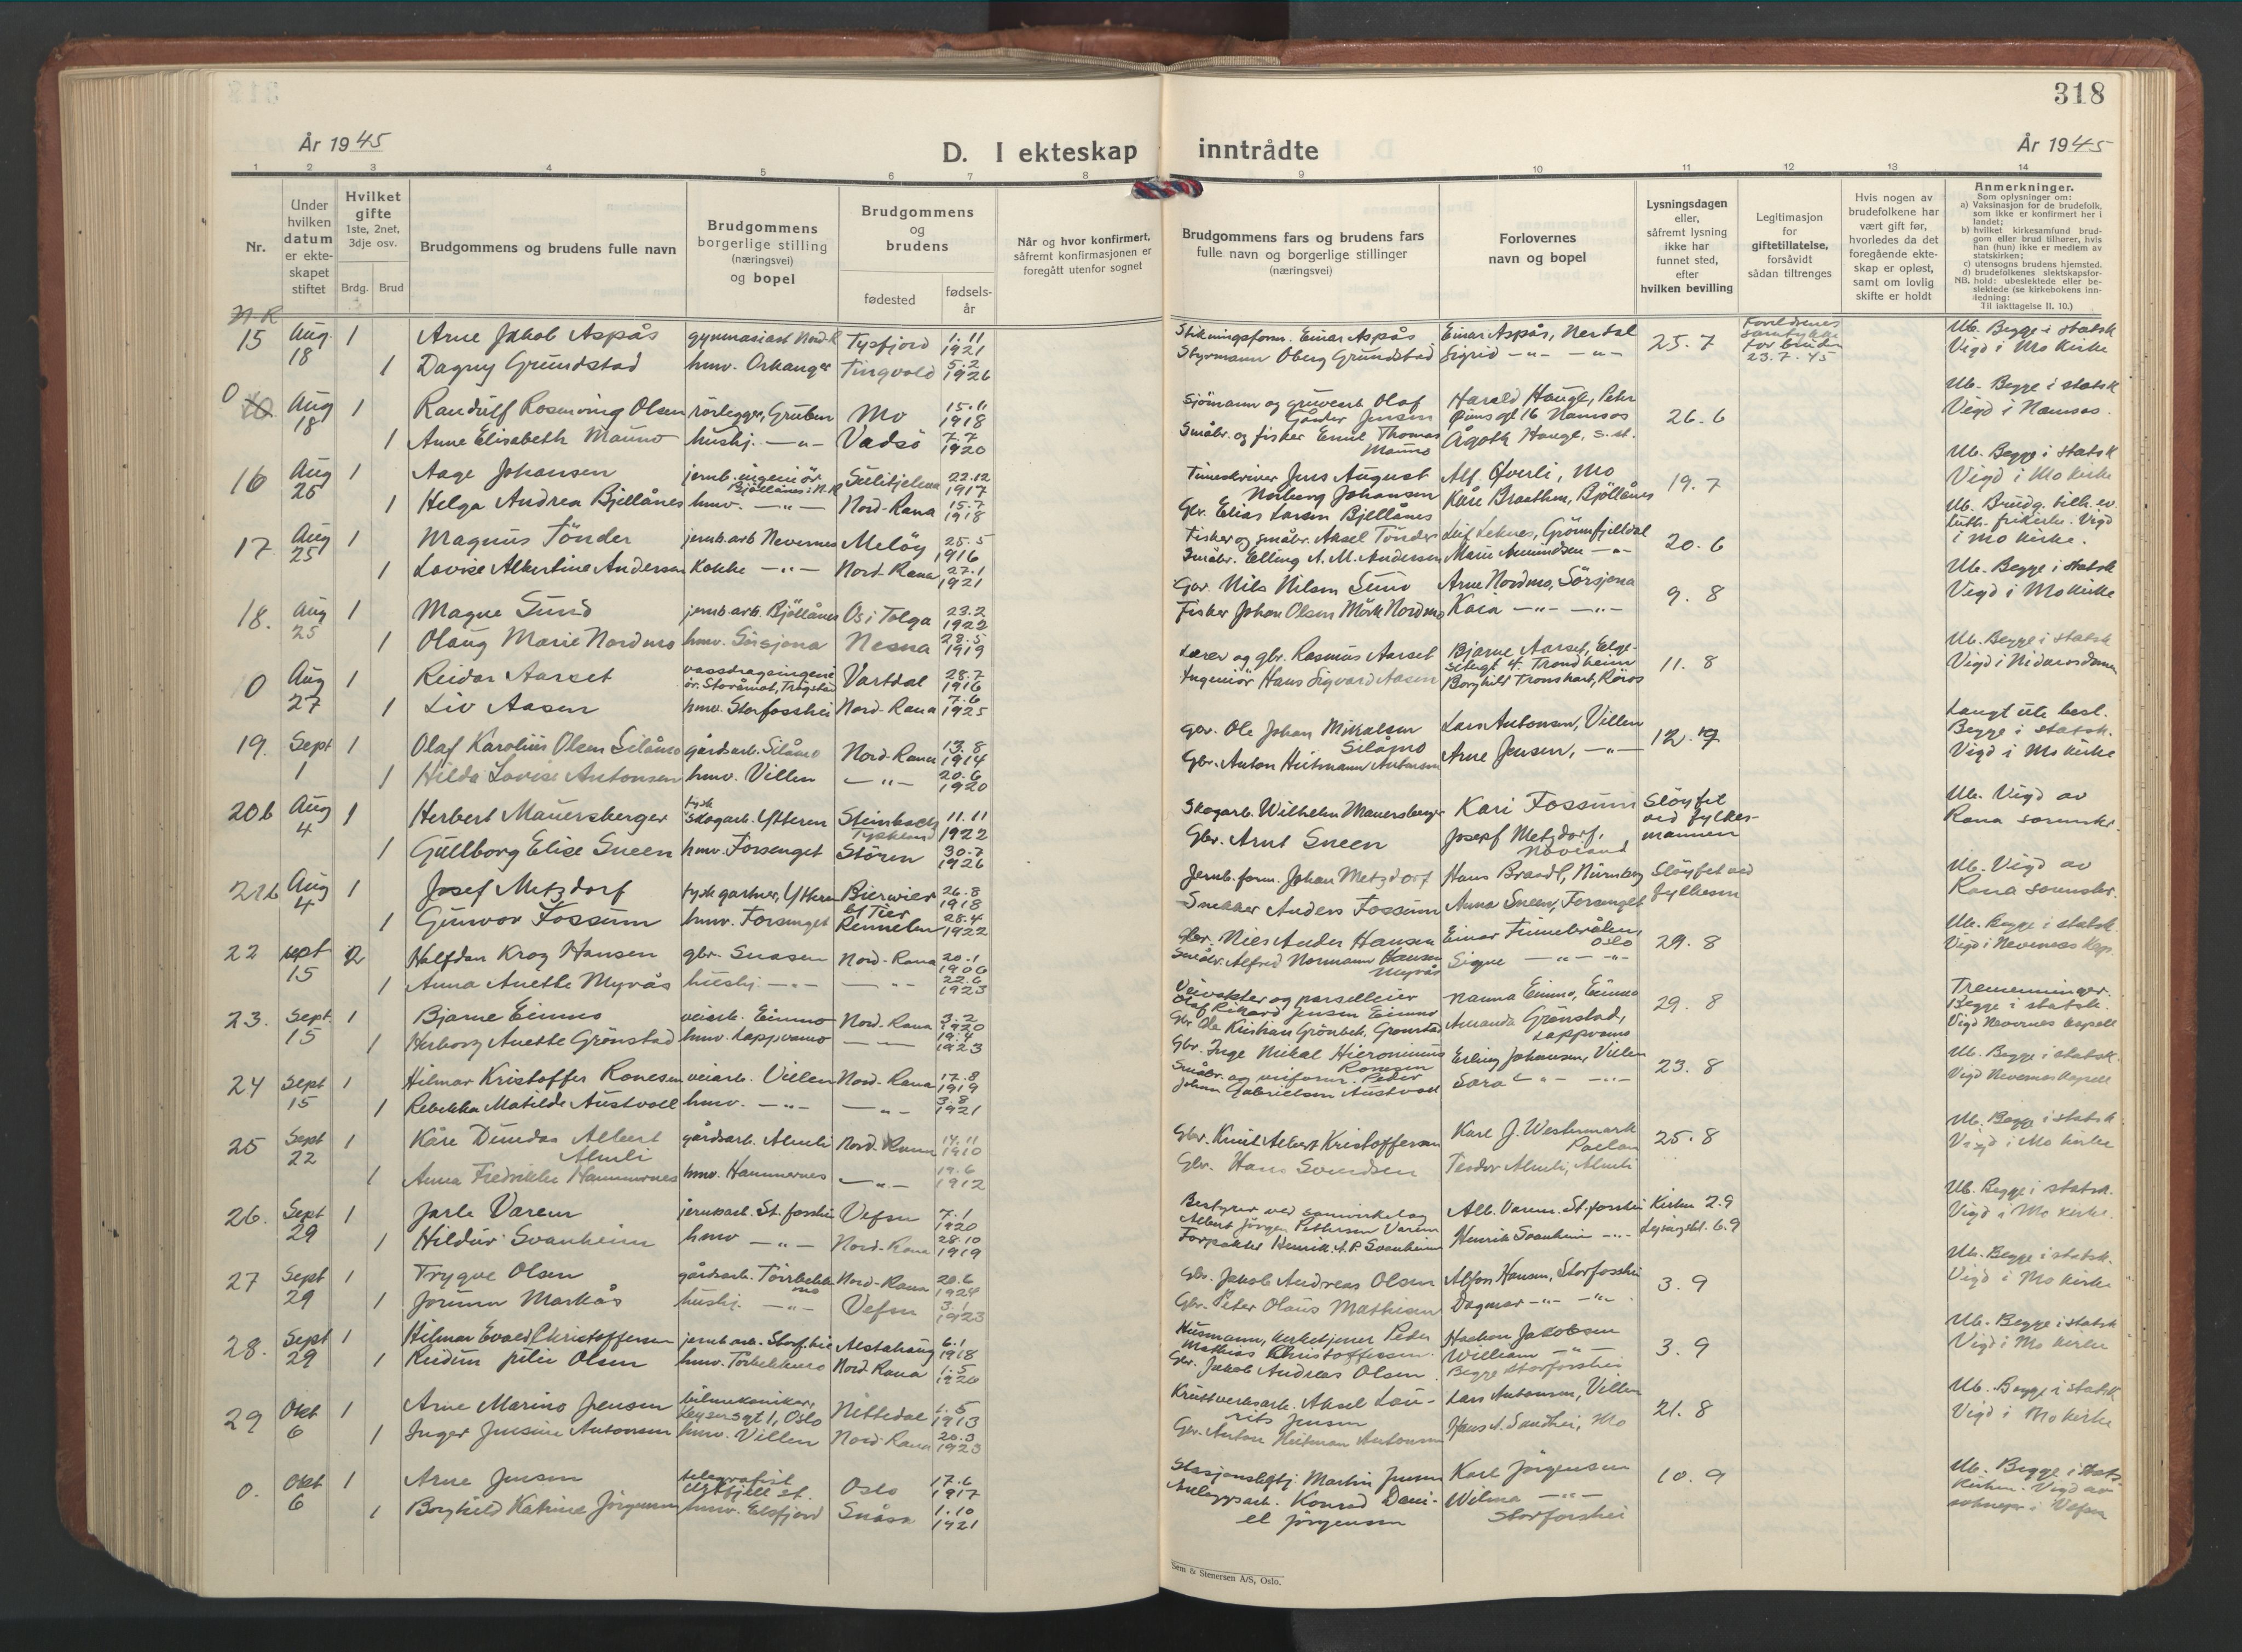 318
År 1945
D. I ekteskap inntrådte
År 1945
1 2 3 4 5 6 7 8 9 10 11 12 13 14
Nr.
Under hvilken datum er ekteskapet stiftet
Hvilket gifte 1ste, 2net, 3dje osv.
Brdg. Brud
Brudgommens og brudens fulle navn
Brudgommens borgerlige stilling (næringsvei) og bopel
Brudgommens og brudens
fødested
fødselsår
Når og hvor konfirmert, såfremt konfirmasjonen er foregått utenfor sognet
Brudgommens fars og brudens fars fulle navn og borgerlige stillinger (næringsvei)
Forlovernes navn og bopel
Lysningsdagen eller, såfremt lysning ikke har funnet sted, efter hvilken bevilling
Legitimasjon for giftetillatelse, forsåvidt sådan tiltrenges
Hvis nogen av brudefolkene har vært gift før, hvorledes da det foregående ekteskap er opløst, samt om lovlig skifte er holdt
Anmerkninger.
Som oplysning om:
a) Vaksinasjon for de brudefolk, som ikke er konfirmert her i landet;
b) hvilket kirkesamfund brudgom eller brud tilhører, hvis han (hun) ikke er medlem av statskirken;
c) utensogns brudens hjemsted.
d) brudefolkenes slektskapsforhold: ubeslektede eller beslektede (se kirkebokens innledning:
NB. Til iakttagelse II. 10.)
N-R
15 Aug. 18 1 Arne Jakob Aspås gymnasiast Nord-R Tysfjord 1.11 1921 Stikningsform. Einar Aspås Einar Aspås, Nerdal 25.7 Foreldrenes samtykke for bruden 23.7.45 Ub. Begge i statsk
1 Dagny Grundstad hmv. Orkanger Tingvold 5.2 1926 Styrmann Oberg Grundstad Sigrid -"- -"- Vigd i Mo Kirke
0 Aug 18 1 Randulf Rosenving Olsen rørlegger, Gruben Mo 15.11 1918 Sjömann og gruvearb. Olaf Gånter Jensen Harald Haugl, Peter 26.6 Ub. Begge i statsk
1 Anne Elisabeth Mauno hushj. -"- Vadsö 7.7 1920 Småbr. og fisker Emil Thomas Mauno Ågoth Haugl, s.st. Vigd i Namsos.
16 Aug 25 1 Aage Johansen jernb.ingeniör Bjøllånes i N.R Sulitjelma 22.12 1917 Timeskriver Jens August Norberg Johansen Alf Øverli, Mo 19.7 Ub. Begge i statsk
1 Helga Andrea Bjellånes hmv. -"- Nord-Rana 15.7 1918 Gbr. Elias Larsen Bjellånes Kåre Braathen, Bjöllånes Vigd i Mo kirke
17 Aug 25 1 Magnus Tönder jernb.arb Nevernes Meløy 25.5 1916 Fisker og småbr. Aksel Tönder Leif Leknes, Grönnfjelldal 20.6 Ub. Brudg. tilh. ev. luth. frikirke. Vigd i Mo kirke.
1 Lovise Albertine Andersen Kokke -"- Nord-Rana 27.1 1921 Småbr. Elling A. M. Andersen Marie Amundsen -"-
18. Aug 25 1 Magne Sund jernb.arb. Bjöllånes Os i Tolga 23.2 1922 Gbr. Nils Nilsen Sund Arne Nordmo, Sörsjona 9.8 Ub. Begge i statsk
1 Olaug Marie Nordmo hmv. Sörsjona Nesna 28.5 1919 Fisker Johan Olsen Mörk Nordmo Kaia -"- -"- Vigd i Mo kirke
0 Aug 27 1 Reidar Aarset vassdragsingeniör. Storåmot, Trögstad Vartdal 28.7 1916 Lærer og gbr. Rasmus Aarset Bjarne Aarset, Elgesetergt 4. Trondheim 11.8 Ub. Begge i statsk
1 Liv Aasen hmv. Storfosshei Nord-Rana 7.6 1925 Ingeniör Hans Sigvard Aasen Borghild Tronshart, Röros Vigd i Nidarosdomen
19. Sept 1 1 Olaf Karolius Olsen Silåmo gårdsarb. Silåmo Nord-Rana 13.8 1914 Gbr. Ole Johan Mikalsen Silåmo Lars Antonsen, Villen 12.7 Langt ute besl. Begge i statsk.
1 Hilda Lovise Antonsen hmv. Villen -"- 20.6 1920 Gbr. Anton Heitmann Antonsen Arne Jensen, -"- Vigd i Mo kirke
20b Aug 4 1 Herbert Mauersberger tysk skogarb. Ytteren Steinbach Tyskland 11.11 1922 Skogarb. Wilhelm Mauersberger Kari Fossum Sløyfet ved fylkesmannen Ub. Vigd av
1 Gullborg Elise Sneen hmv. Forsenget Stören 30.7 1926 Gbr. Arnt Sneen Josef Metzdorf. Rana sorenskr.
21b Aug 4 1 Josef Metzdorf tysk gartner, Ytteren Bierwier 26.8 1918 Jernb.form. Johan Metzdorf Hans Brandl, Nürnberg Sløyfet ved fylkesm Ub. Vigd av
1 Gunvor Fossum hmv. Forsenget Rennebu 28.4 1922 Snekker Anders Fossum Anna Sneen, Forsenget Rana sorenskr.
22 Sept 15 2 Halfdan Krog Hansen gbr. Snasen Nord-Rana 20.1 1906 Gbr. Nils Ander Hansen Einar Finnebråten, Oslo 29.8 Ub. Begge i statsk.
1 Anna Anette Myrås hushj. -"- -"- 22.6 1923 Småbr. Alfred Normann Hansen Myrås Signe -"- -"- Vigd i Nevernes Kap.
23. Sept. 15 1 Bjarne Einmo veiarb. Einmo Nord-Rana 3.2 1920 Veivokter og parselleier Olaf Rikard Jensen Einmo Nanna Einmo, Einmo 29.8 Tremenninger. Begge i statsk.
1 Herborg Anette Grönstad hmv. Lappvamo -"- 19.4 1923 Gbr Ole Kristian Grönbek. Grönstad Amanda Grönstad, Lappvamo Vigd Nevernes kapell
24 Sept 15 1 Hilmar Kristoffer Ronesen veiarb. Villen Nord-Rana 17.8 1919 Gbr. Inge Mikal Hieronimus Ronesen Erling Johansen, Villen 23.8 Ub. Begge i statsk.
1 Rebekka Matilde Austvoll hmv. -"- -"- 3.8 1921 Småbr. og veiform. Peder Johan Gabrielsen Austvoll Sara -"- -"- Vigd Nevernes kapell
25 Sept 22 1 Kåre Dundas Albert Almli gårdsarb. Almli Nord-Rana 14.11 1910 Gbr. Knut Albert Kristoffersen Karl J. Westermark 25.8 Ub. Begge i statsk.
1 Anna Fredrikke Hammernes hmv. Hammernes -"- 19.6 1912 Gbr. Hans Svendsen Teodor Almli, Almli Vigd i Mo kirke
26. Sept 29 1 Jarle Varem jernbarb. St.forshei Vefsn 7.1 1920 Bestyrer ved samvirkelag Albert Jörgen Pettersen Varem Alb. Varem. St.forshei Kirken 2.9 Ub. Begge i statsk.
1 Hildur Svanheim hmv -"- Nord-Rana 28.10 1919 Forpakter Henrik A. P. Svanheim Henrik Svanheim -"- Lysingsbl. 6.9 Vigd i Mo kirke.
27 Sept 29 1 Trygve Olsen gårdsarb. Törrbekkmo Nord-Rana 20.6 1924 Gbr. Jakob Andreas Olsen Alfon Hansen, Storfosshei 3.9 Ub. Begge i statsk.
1 Jorunn Markås hushj. -"- Vefsn 3.1 1923 Gbr. Peter Olaus Mathisen Dagmar -"- -"- Vigd i Mo kirke
28. Sept 29 1 Hilmar Evald Christoffersen jernb.arb. Storf.hei Alstahaug 6.1 1918 Husmann, kirketjener Peder Mathias Christoffersen. Haakon Jakobsen 3.9 Ub. Begge i statsk
1 Reidun Julie Olsen hmv. Törbekkmo Nord Rana 1.5 1926 Gbr. Jakob Andreas Olsen William -"- Begge Storforshei Vigd i Mo kirke
29 Okt 6 1 Arne Marino Jensen bilmekaniker, Keysersgt 1, Oslo Nittedal 1.5 1913 Kruttverksarb. Aksel Laurits Jensen Lars Antonsen, Villen 21.8 Ub. Begge i statsk
1 Inger Jensine Antonsen hmv. Villen Nord-Rana 20.3 1923 Gbr. Anton Heitman Antonsen Hans A. Sandhei, Mo Vigd i Mo kirke
0. Okt 6 1 Arne Jensen telegrafist Oslo 17.6 1917 Stasjonsbetj. Martin Jensen Karl Jörgensen 10.9 Ub. Begge i stats kirken. Vigd av
1 Borghild Katrine Jörgensen hmv. Elsfjord Snåsa 1.10 1921 Anleggsarb. Konrad Daniel Jörgensen Wilma -"- Storforshei sokneprs i Vefsn
Sem & Stenersen A/S, Oslo.